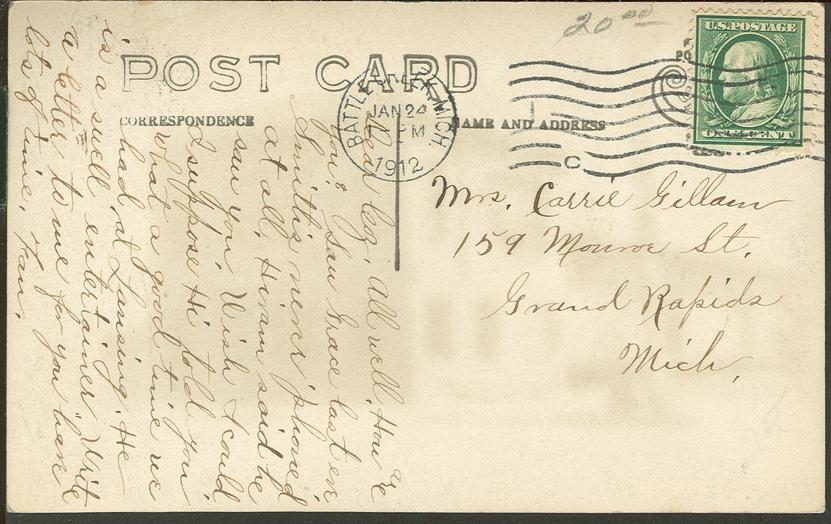 20.00
U.S. POSTAGE
POST CARD
BATTLE CREEK, MICH.
JAN 24
PM
1912
CORRESPONDENCE
NAME AND ADDRESS
ONE CENT
C
Mrs. Carrie Gillam
159 Monroe St.
Grand Rapids
Mich.
all well. How's
you? Saw Grace last eve
Smiths never 'phoned
at all. Hiram said he
saw you. Wish I could
I suppose Hi told you
what a good time we
had at Lansing. He
is a swell entertainer. Write
a letter to me for you have
lots of time.